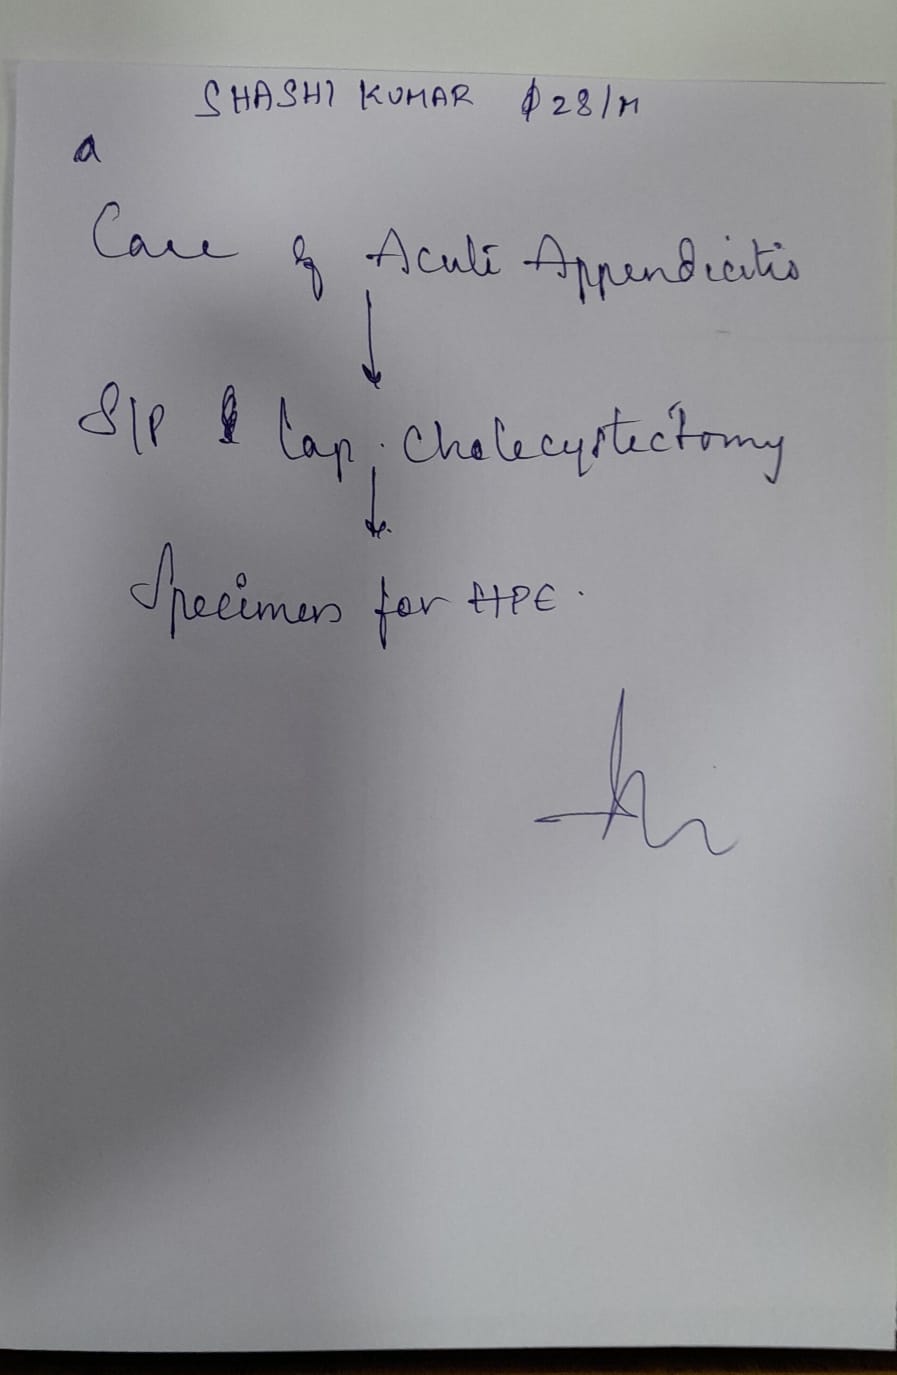 SHASHI KUMAR 28/M
a
Case of Acute Appendicitis
↓
S/P Lap. Cholecystectomy
↓
Specimen for HPE.